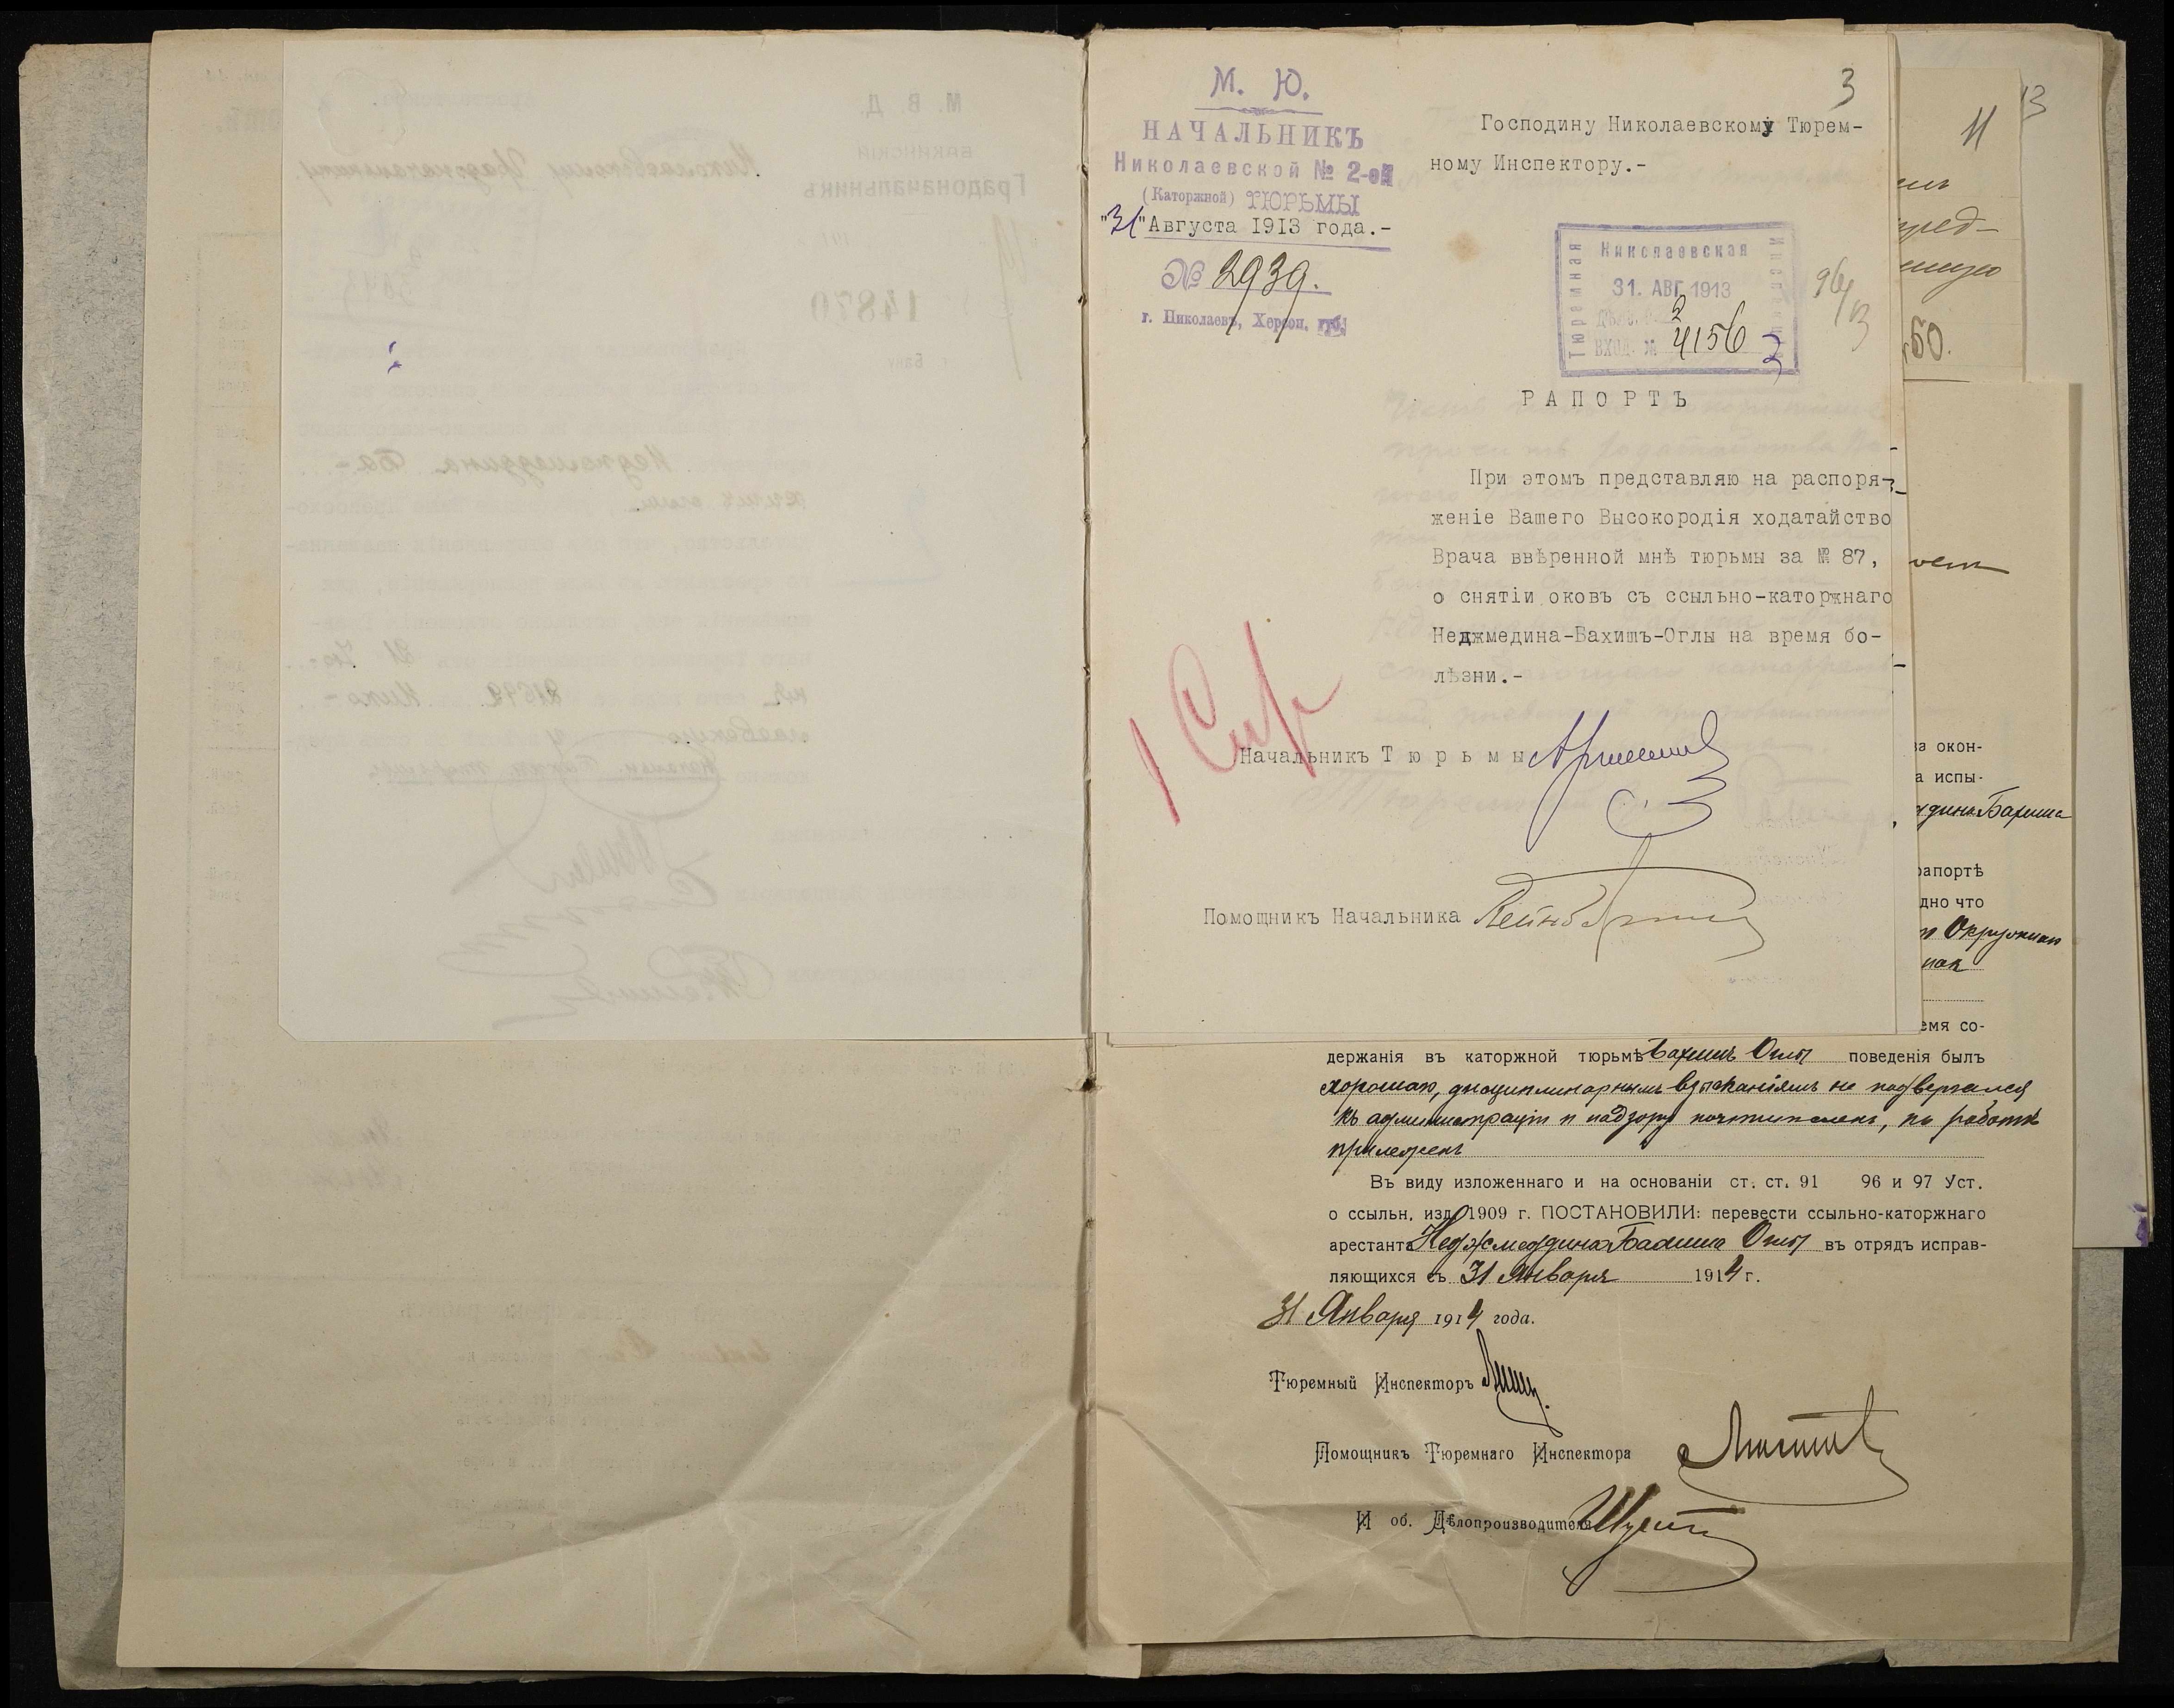 3
М. Ю.
НАЧАЛЬНИКЪ
Николаевской № 2-ой
(Каторжной) ТЮРЬМЫ
"31" Августа 1913 года.-
№ 2939.
г. Николаевъ, Херсон. губ.
Господину Николаевскому Тюрем-
ному Инспектору.-
Николаевская
Тюремная
31. АВГ. 1913
ВХОД. № 4156
РАПОРТЪ
При этомъ представляю на распоря-
женіе Вашего Высокородія ходатайство
Врача ввѣренной мнѣ тюрьмы за № 87,
о снятіи оковъ съ ссыльно-каторжнаго
Неджмедина-Бахишъ-Оглы на время бо-
лѣзни.-
Начальникъ Тюрьмы
Помощникъ Начальника
11
13
50.
за окон-
а испы-
дина Бахиша
рапортѣ
дно что
емя со-
держанія въ каторжной тюрьмѣ Бахишъ Оглы поведенія былъ
хорошаго, дисциплинарнымъ взысканіямъ не подвергался
къ администраціи и надзору почтителенъ, къ работѣ
прилеженъ
Въ виду изложеннаго и на основаніи ст. ст. 91 96 и 97 Уст.
о ссыльн. изд. 1909 г. ПОСТАНОВИЛИ: перевести ссыльно-каторжнаго
арестанта Неджмеддина Бахиша Оглы въ отрядъ исправ-
ляющихся съ 31 Января 1914 г.
31 Января 1914 года.
Тюремный Инспекторъ
Помощникъ Тюремнаго Инспектора
И об. Дѣлопроизводителя